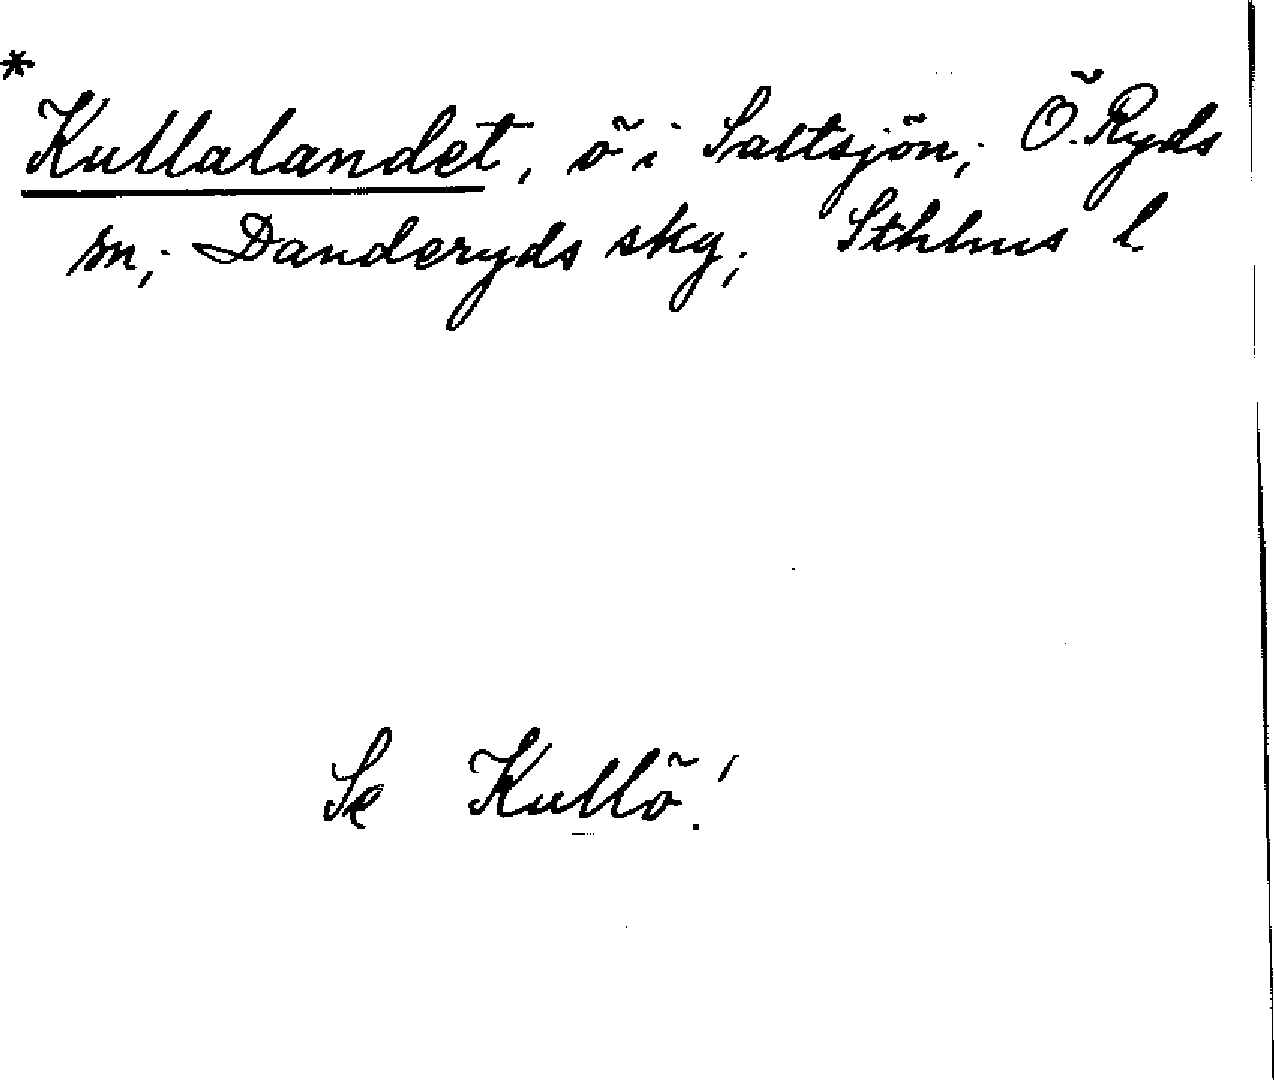 *
Kullalandet, ö i Saltsjön; Ö. Ryds
sn; Danderyds skg; Sthlms l.
Se Kullö!